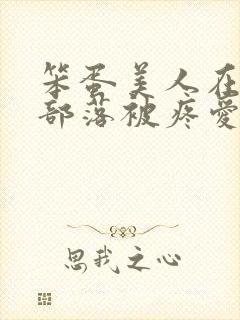 笨蛋美人在
部落被疼爱
思我之心